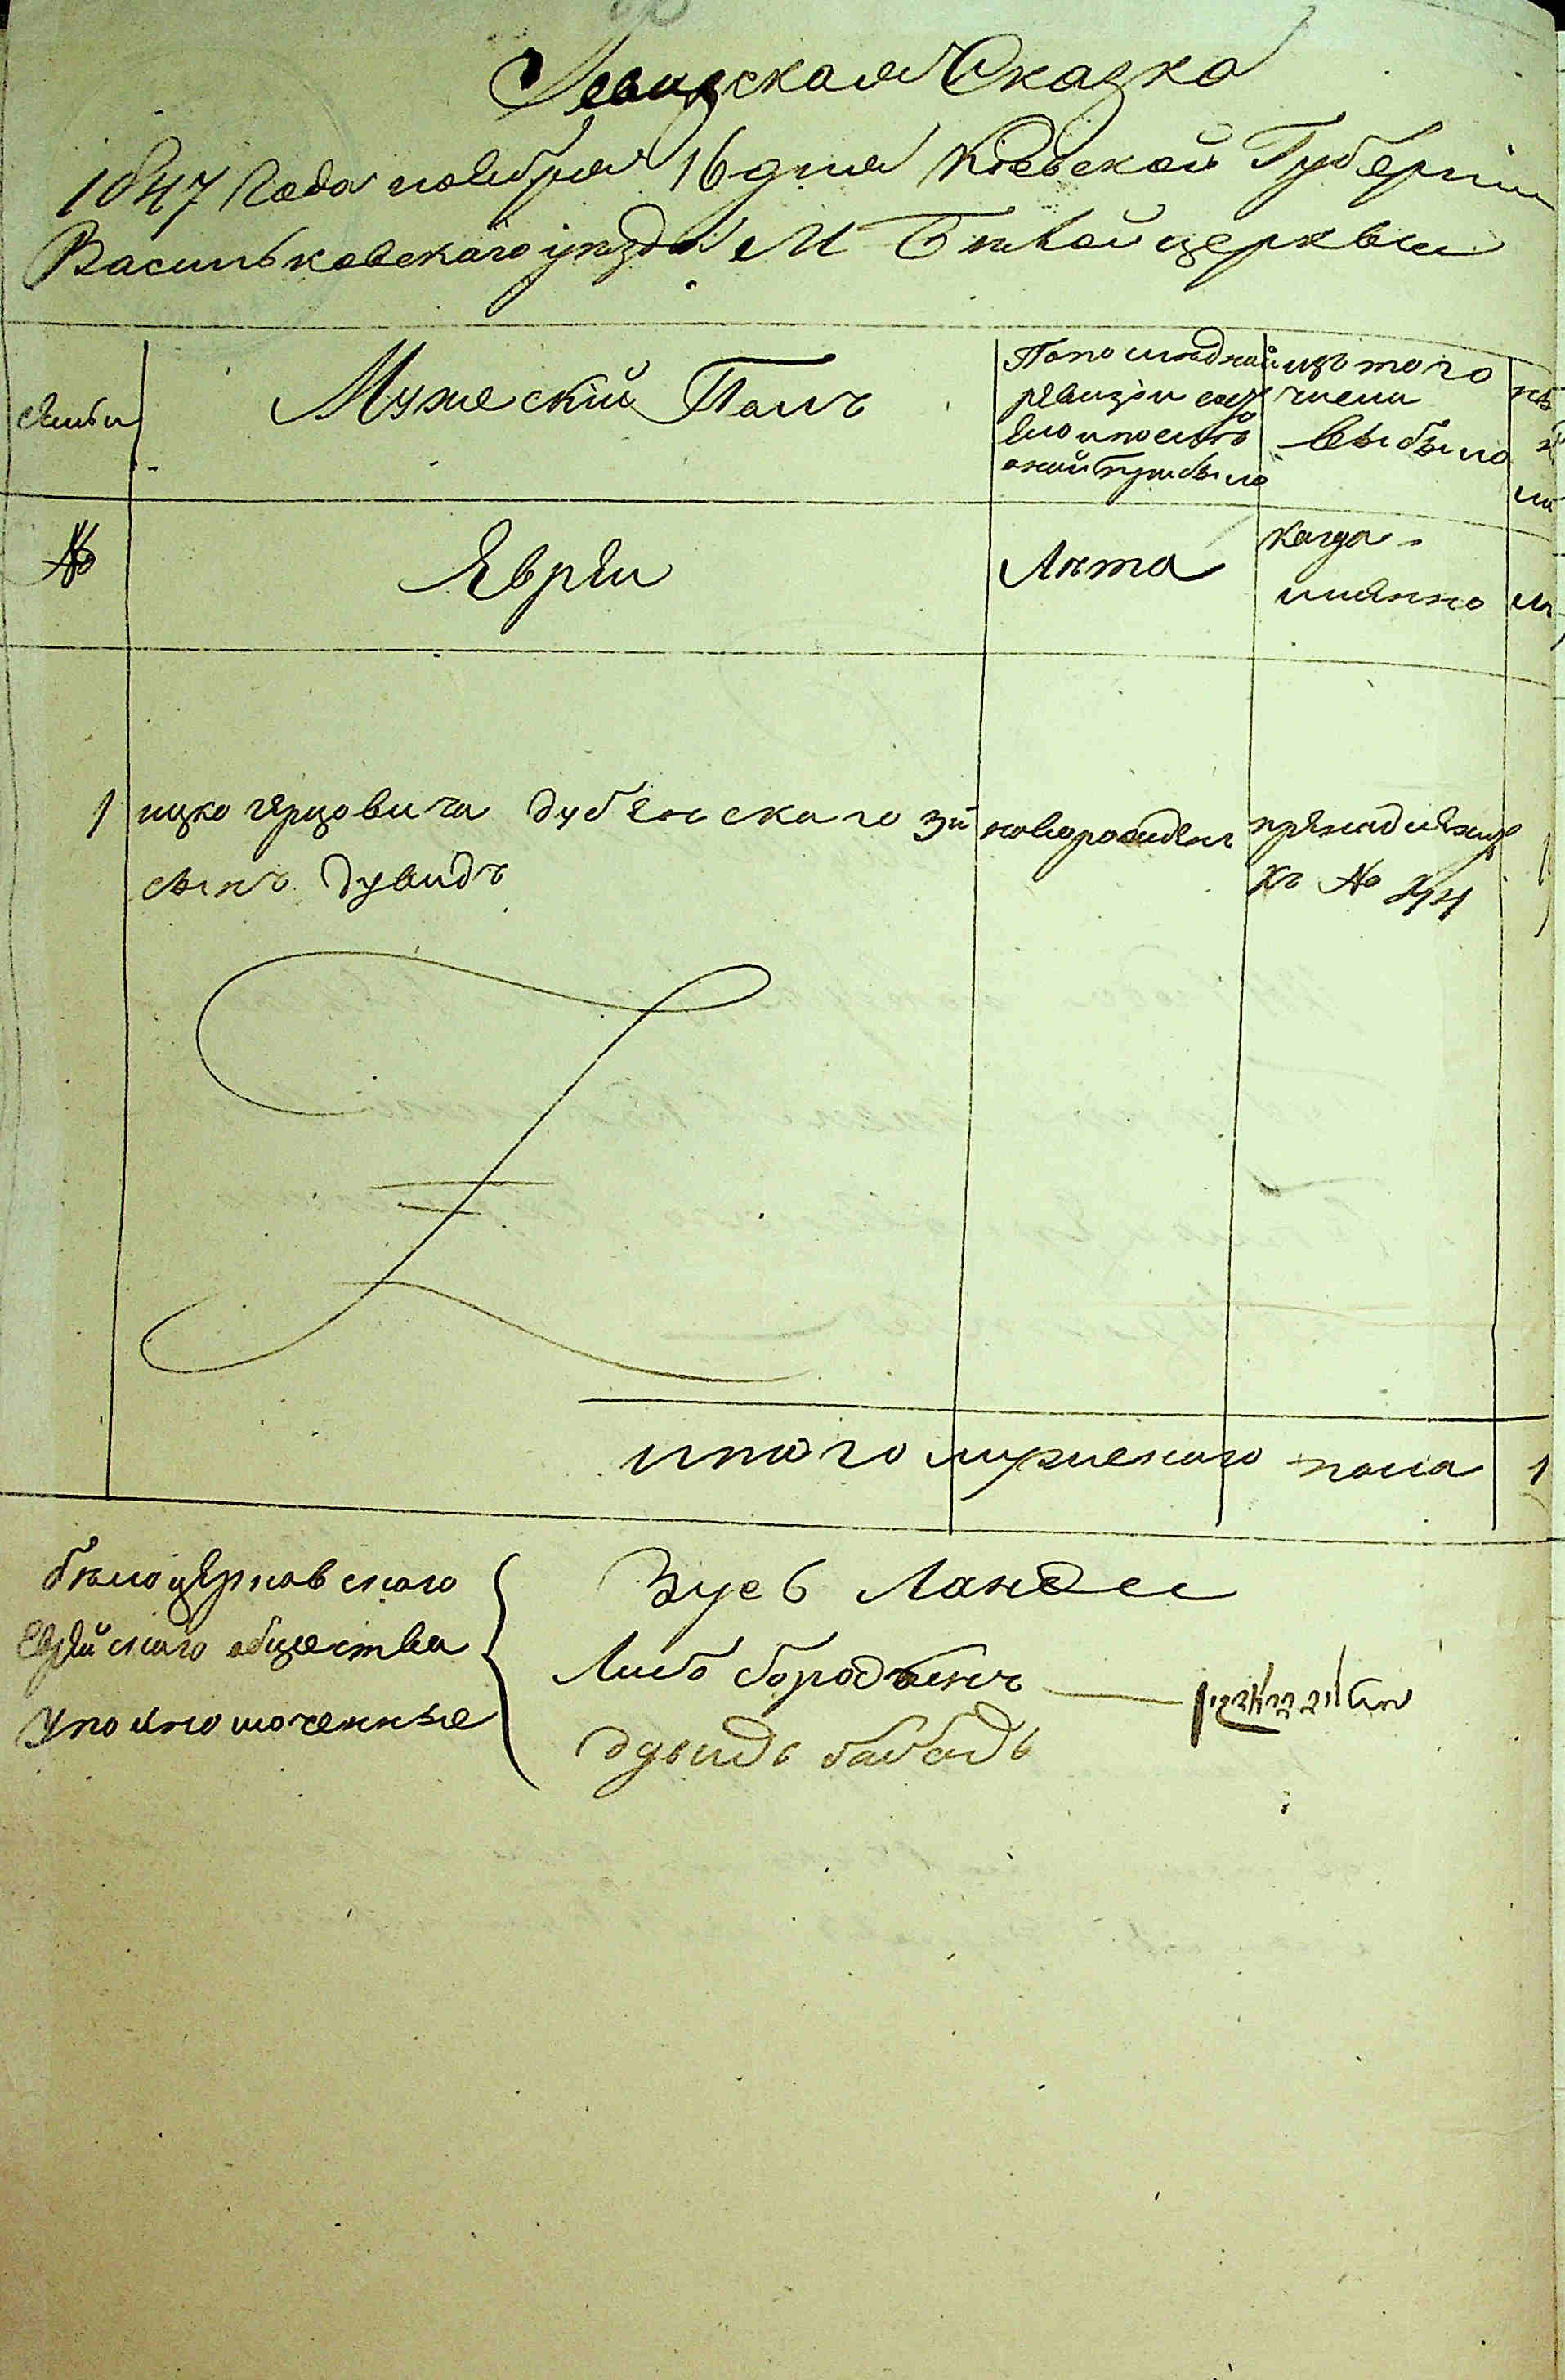 Ревизская Сказка
1847 Года ноября 16 дня Кіевской Губерніи
Васильковскаго уезда М Белой церкви
Семьи
Мужескій Полъ
По последней
ревизіи состо
яло и после
оной прибыло
изъ того
числа
выбыло
№
Евреи
Лета
когда
имянно
1 ицко герцовича дубенскаго 3й новорожденъ
сынъ дувидъ
къ № 44
итого мужескаго пола 1
белоцерковскаго
еврейскаго общества
уполномоченные
Зусь Ландес
Либо бородянъ
дувидь бабадь